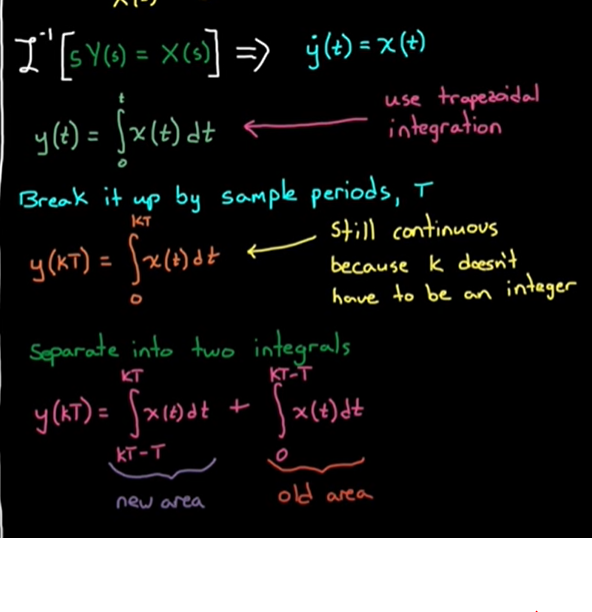 ℒ⁻¹[sY(s) = X(s)] ⇒ ẏ(t) = x(t)
y(t) = ∫₀ᵗ x(t) dt ← use trapezoidal
integration
Break it up by sample periods, T
y(KT) = ∫₀ᴷᵀ x(t) dt ← still continuous
because k doesn't
have to be an integer
Separate into two integrals
KT KT-T
y(kT) = ∫ x(t) dt + ∫ x(t) dt
KT-T 0
new area old area